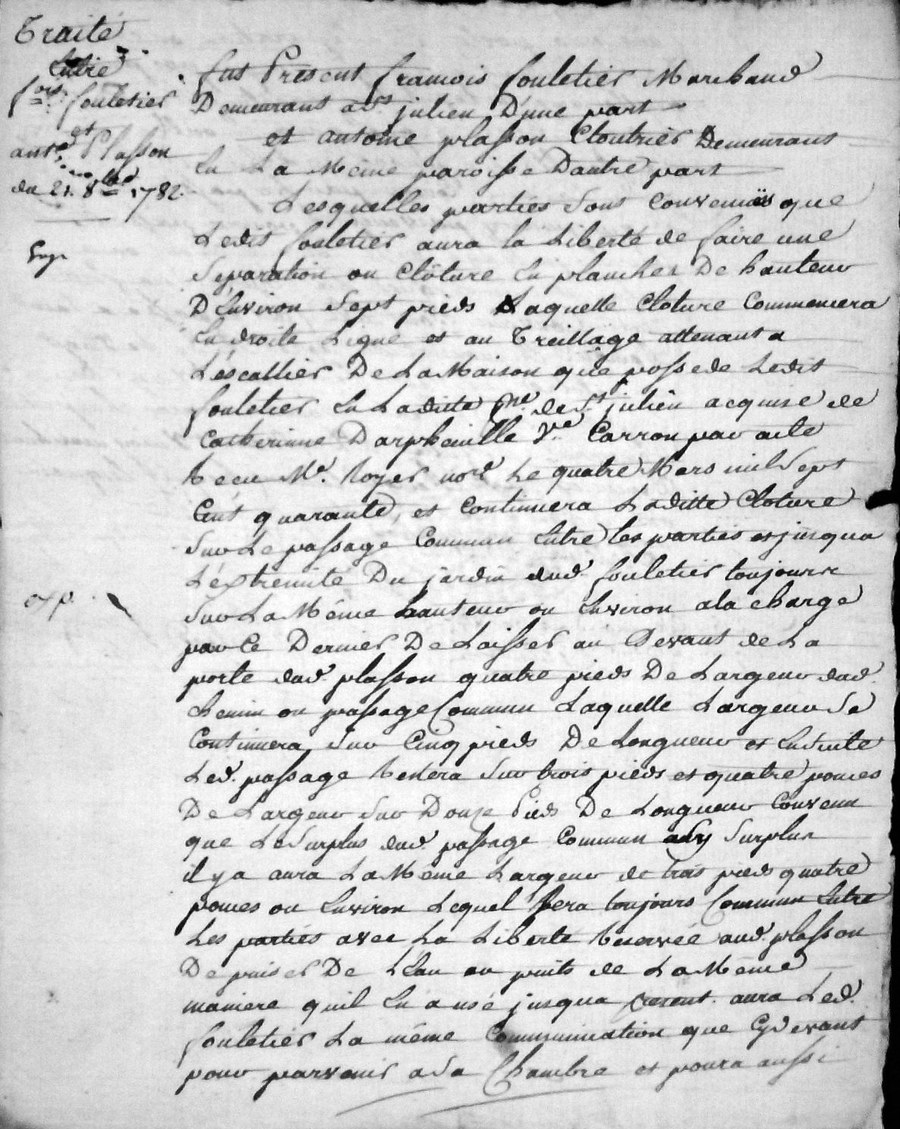 Traité
Entre
fois. fouletier
et
antne. Plasson
du 21. 8bre 1782
exp.
fut Present francois fouletier Marchand
Demeurant a st julien D'une part
et antoine plasson Cloutrier Demeurant
En La Même paroisse D'autre part
Lesquelles parties sont Convenuës que
Ledit fouletier aura la Liberté de faire une
Separation ou Clôture En planches De hauteur
D'Environ Sept pieds Laquelle Cloture Commencera
En droite Ligne et au Treillage attenant a
L'escallier De La Maison que possede Ledit
fouletier En Laditte pne. de St julien acquise de
Catherinne Darpheuille Ve. Carron par acte
Recu Me. Royer nore Le quatre Mars mil Sept
Cent quarante, et Continuera Laditte Cloture
Sur Le passage Commun Entre les parties et jusqua
L'extremité Du jardin dud. fouletier toujours
Sur La Même hauteur ou Environ a la charge
par Ce Dernier De Laisser au Devant de La
porte dud. plasson quatre pieds De Largeur dud.
Chemin ou passage Commun Laquelle Largeur Se
Continuera Sur Cinq pieds De Longueur et Ensuite
Led. passage Restera Sur trois pieds et quatre pouces
De Largeur Sur Douze Pieds De Longueur Convenu
que Le Surplus dud. passage Commun Surplus
il y a aura La Même Largeur de trois pieds quatre
pouces ou Environ Lequel Sera toujours Commun Entre
Les parties avec La Liberté Reservée aud. plasson
De puiser De L'Eau au puits de La Même
maniere qu'il En a usé jusqua present. aura Led.
fouletier La même Communication que Cydevant
pour parvenir a Sa Chambre et poura aussi